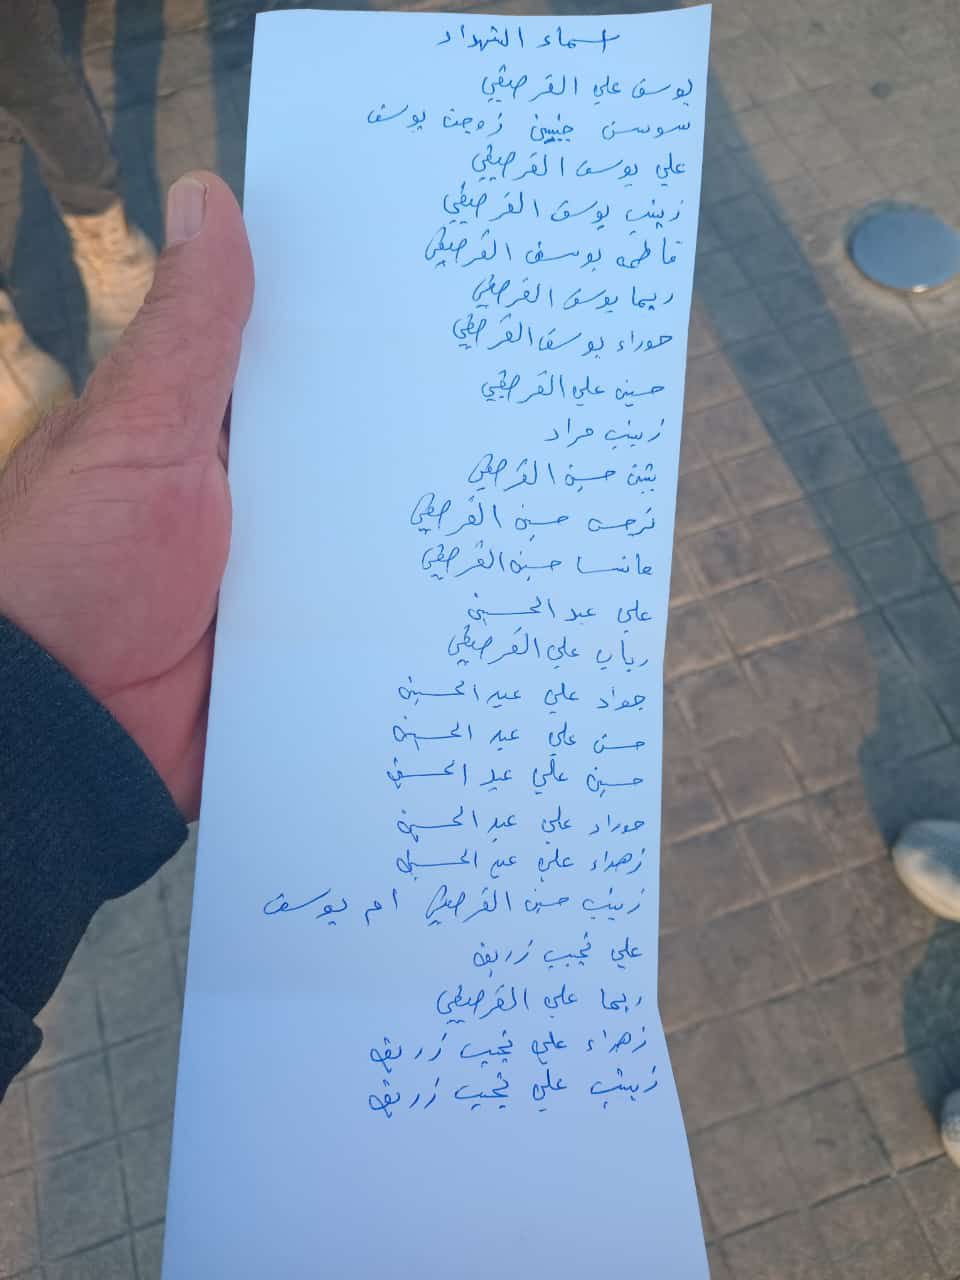 اسماء الشهداء
يوسف علي القرصيفي
سوسن زوجت يوسف
علي يوسف القرصيفي
زينب يوسف القرصيفي
فاطمه يوسف القرصيفي
ريما يوسف القرصيفي
حوراء يوسف القرصيفي
حسين علي القرصيفي
زينب مراد
حسين القرصيفي
نرجس حسين القرصيفي
حسين القرصيفي
علي عبد الحسين
رباب علي القرصيفي
جواد علي عبد الحسين
حسن علي عبد الحسين
حسين علي عبد الحسين
حوراء علي عبد الحسين
زهراء علي عبد الحسين
زينب حسين القرصيفي أم يوسف
علي نجيب زريق
ريما علي القرصيفي
زهراء علي نجيب زريق
زينب علي نجيب زريق